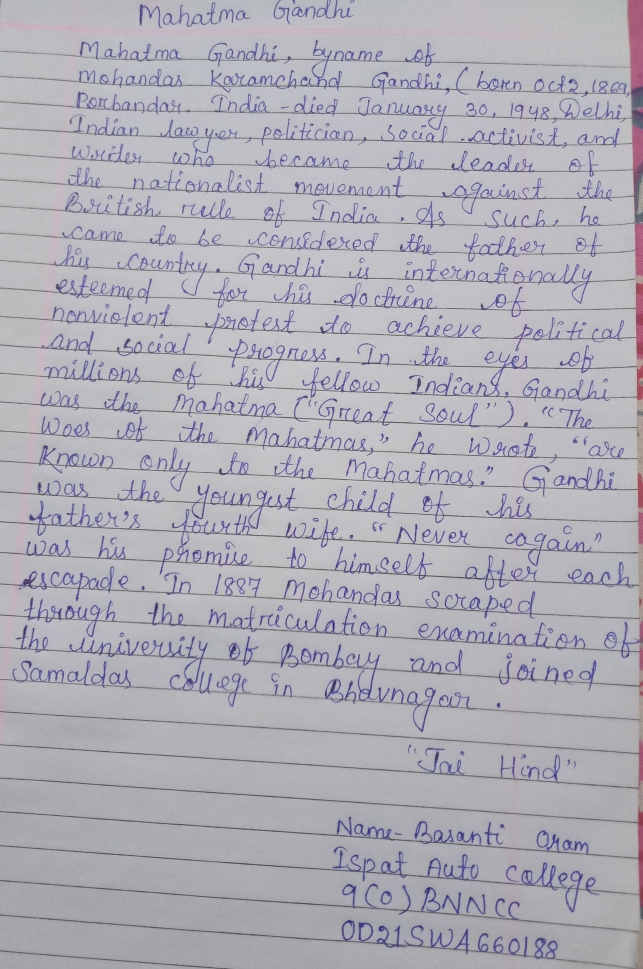 Mahatma Gandhi
Mahatma Gandhi, byname of
Mohandas Karamchand Gandhi, (born Oct 2, 1869,
Porbandar. India - died January 30, 1948, Delhi,
Indian lawyer, politician, social activist, and
writer who became the leader of
the nationalist movement against the
British rule of India. As such, he
came to be considered the father of
his country. Gandhi is internationally
esteemed for his doctrine of
nonviolent protest to achieve political
and social progress. In the eyes of
millions of his fellow Indians, Gandhi
was the Mahatma ("Great Soul"). "The
woes of the Mahatmas," he wrote, "are
known only to the Mahatmas." Gandhi
was the youngest child of his
father's fourth wife. "Never again"
was his promise to himself after each
escapade. In 1887 Mohandas scraped
through the matriculation examination of
the university of Bombay and joined
Samaldas college in Bhavnagar.
"Jai Hind"
Name- Basanti Oram
Ispat Auto college
9(O) BNNCC
OD21SWA660188